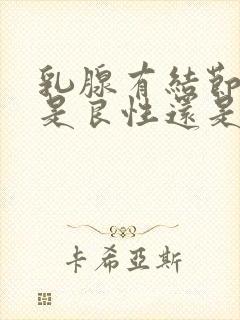 乳腺有結節
是良性還是
卡希亞斯